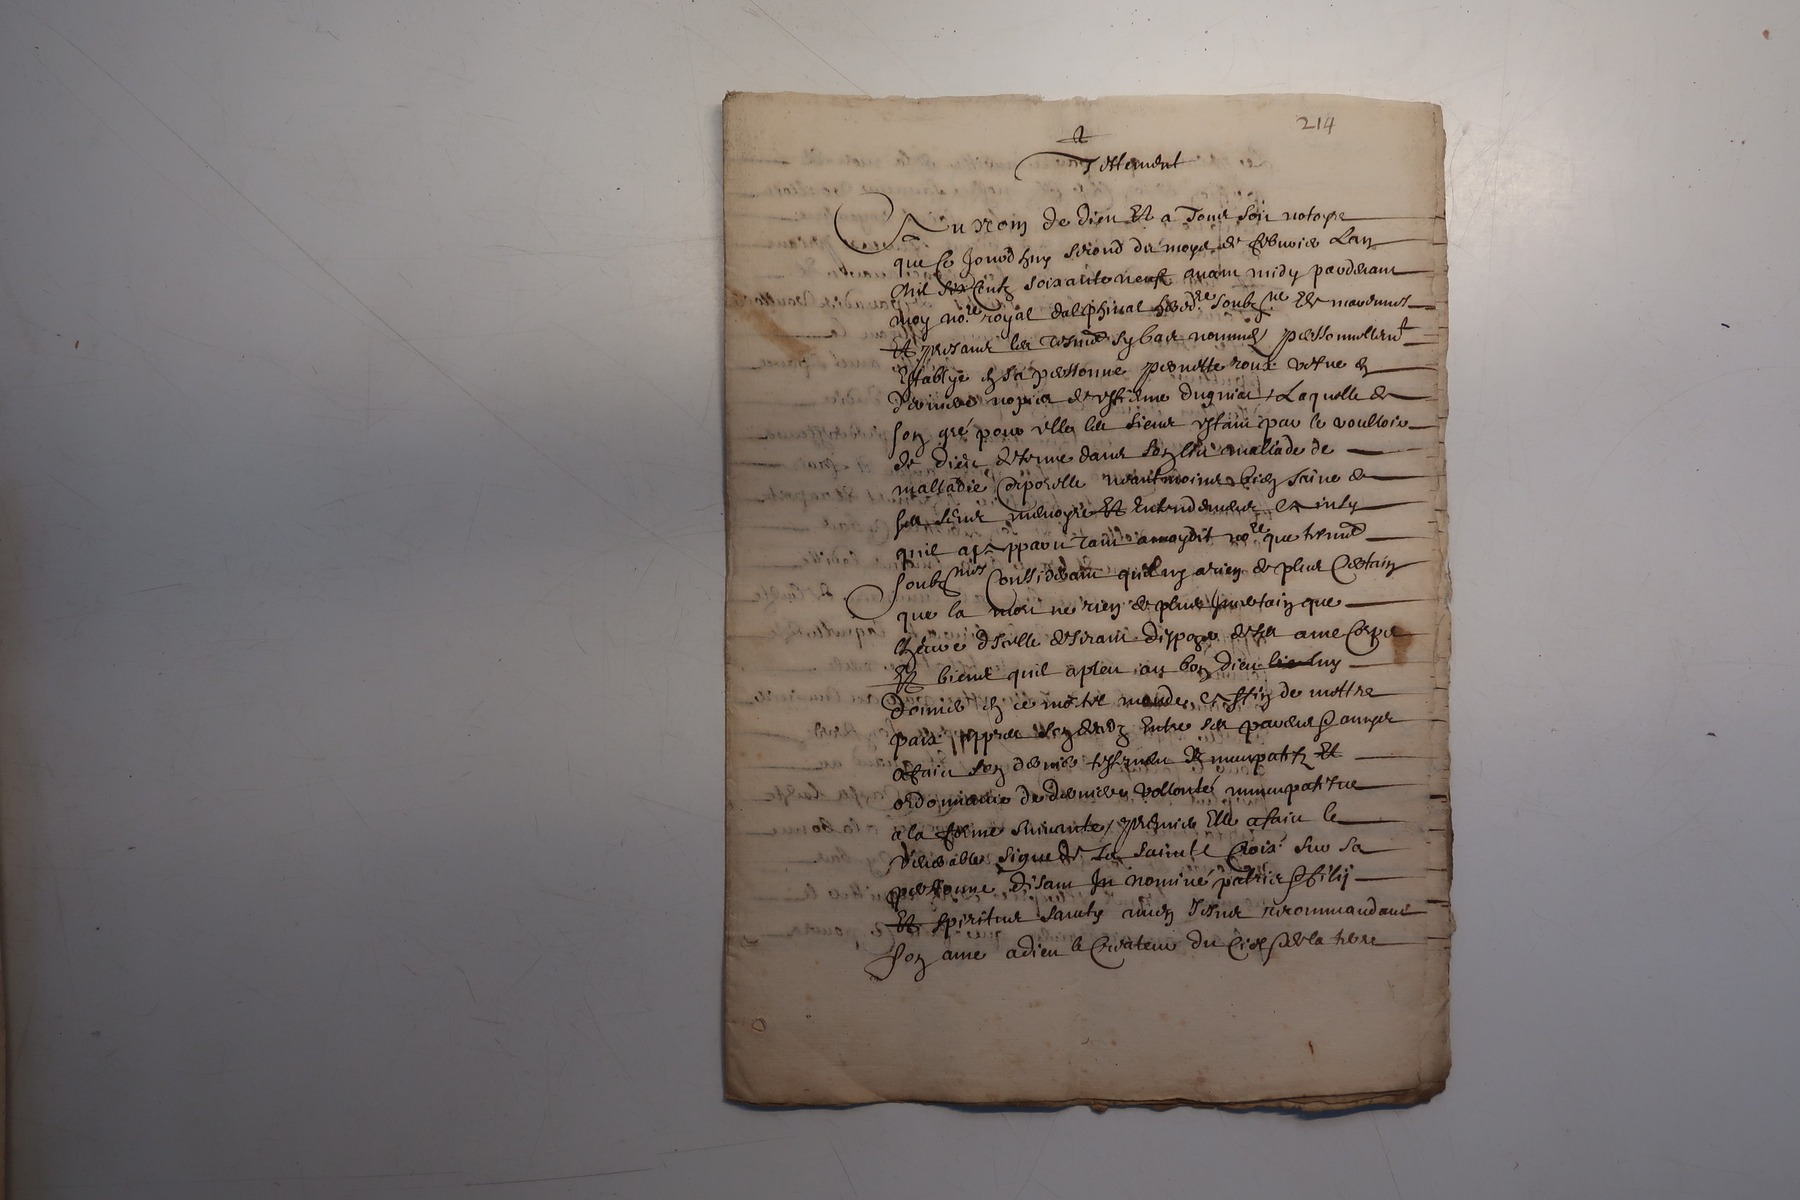 214
Testement
Au Nom de dieu Et a Tous soit notoyre
que Ce Jourd huy second du moys de febvrier Lan
Mil six Centz soixante neuf avant midy pardevant
moy no.re royal dalphinal hered.re soubz.ne Et
Et presans les tesmo sy bas nommes personnellem.t
Establye en sa personne pernette roux vefve en
dernieres nopces de estienne dugniat Laquelle de
son gré pour elle les siens estant par le voulloir
de dieu detenue dans son lit mallade de
malladie Corporelle neantmoins bien saine de
ses sens memoyre Et Entendement
quil a apparu tant a moydit no.re que tesmo
soubz.nes Considerant quil ny a rien de plus Certain
que la mort ne rien de plus Incertain que
lheure dicelle desirant dispozer de ses ame Corps
Et biens quil a pleu au bon dieu luy
donner en ce mortel monde affin de mettre
paix appres son deces Entre ses parens & amys
a faict son dernier testement nuncupatif Et
ordonnance de derniere vollonté nuncupative
a la forme suivante, premier Elle a faict le
venerable signe de la sainte Croix sur sa
personne disant In nomine patris & filij
Et spiritus sancty amen recommandant
son ame a dieu le Createur du Ciel & de la terre